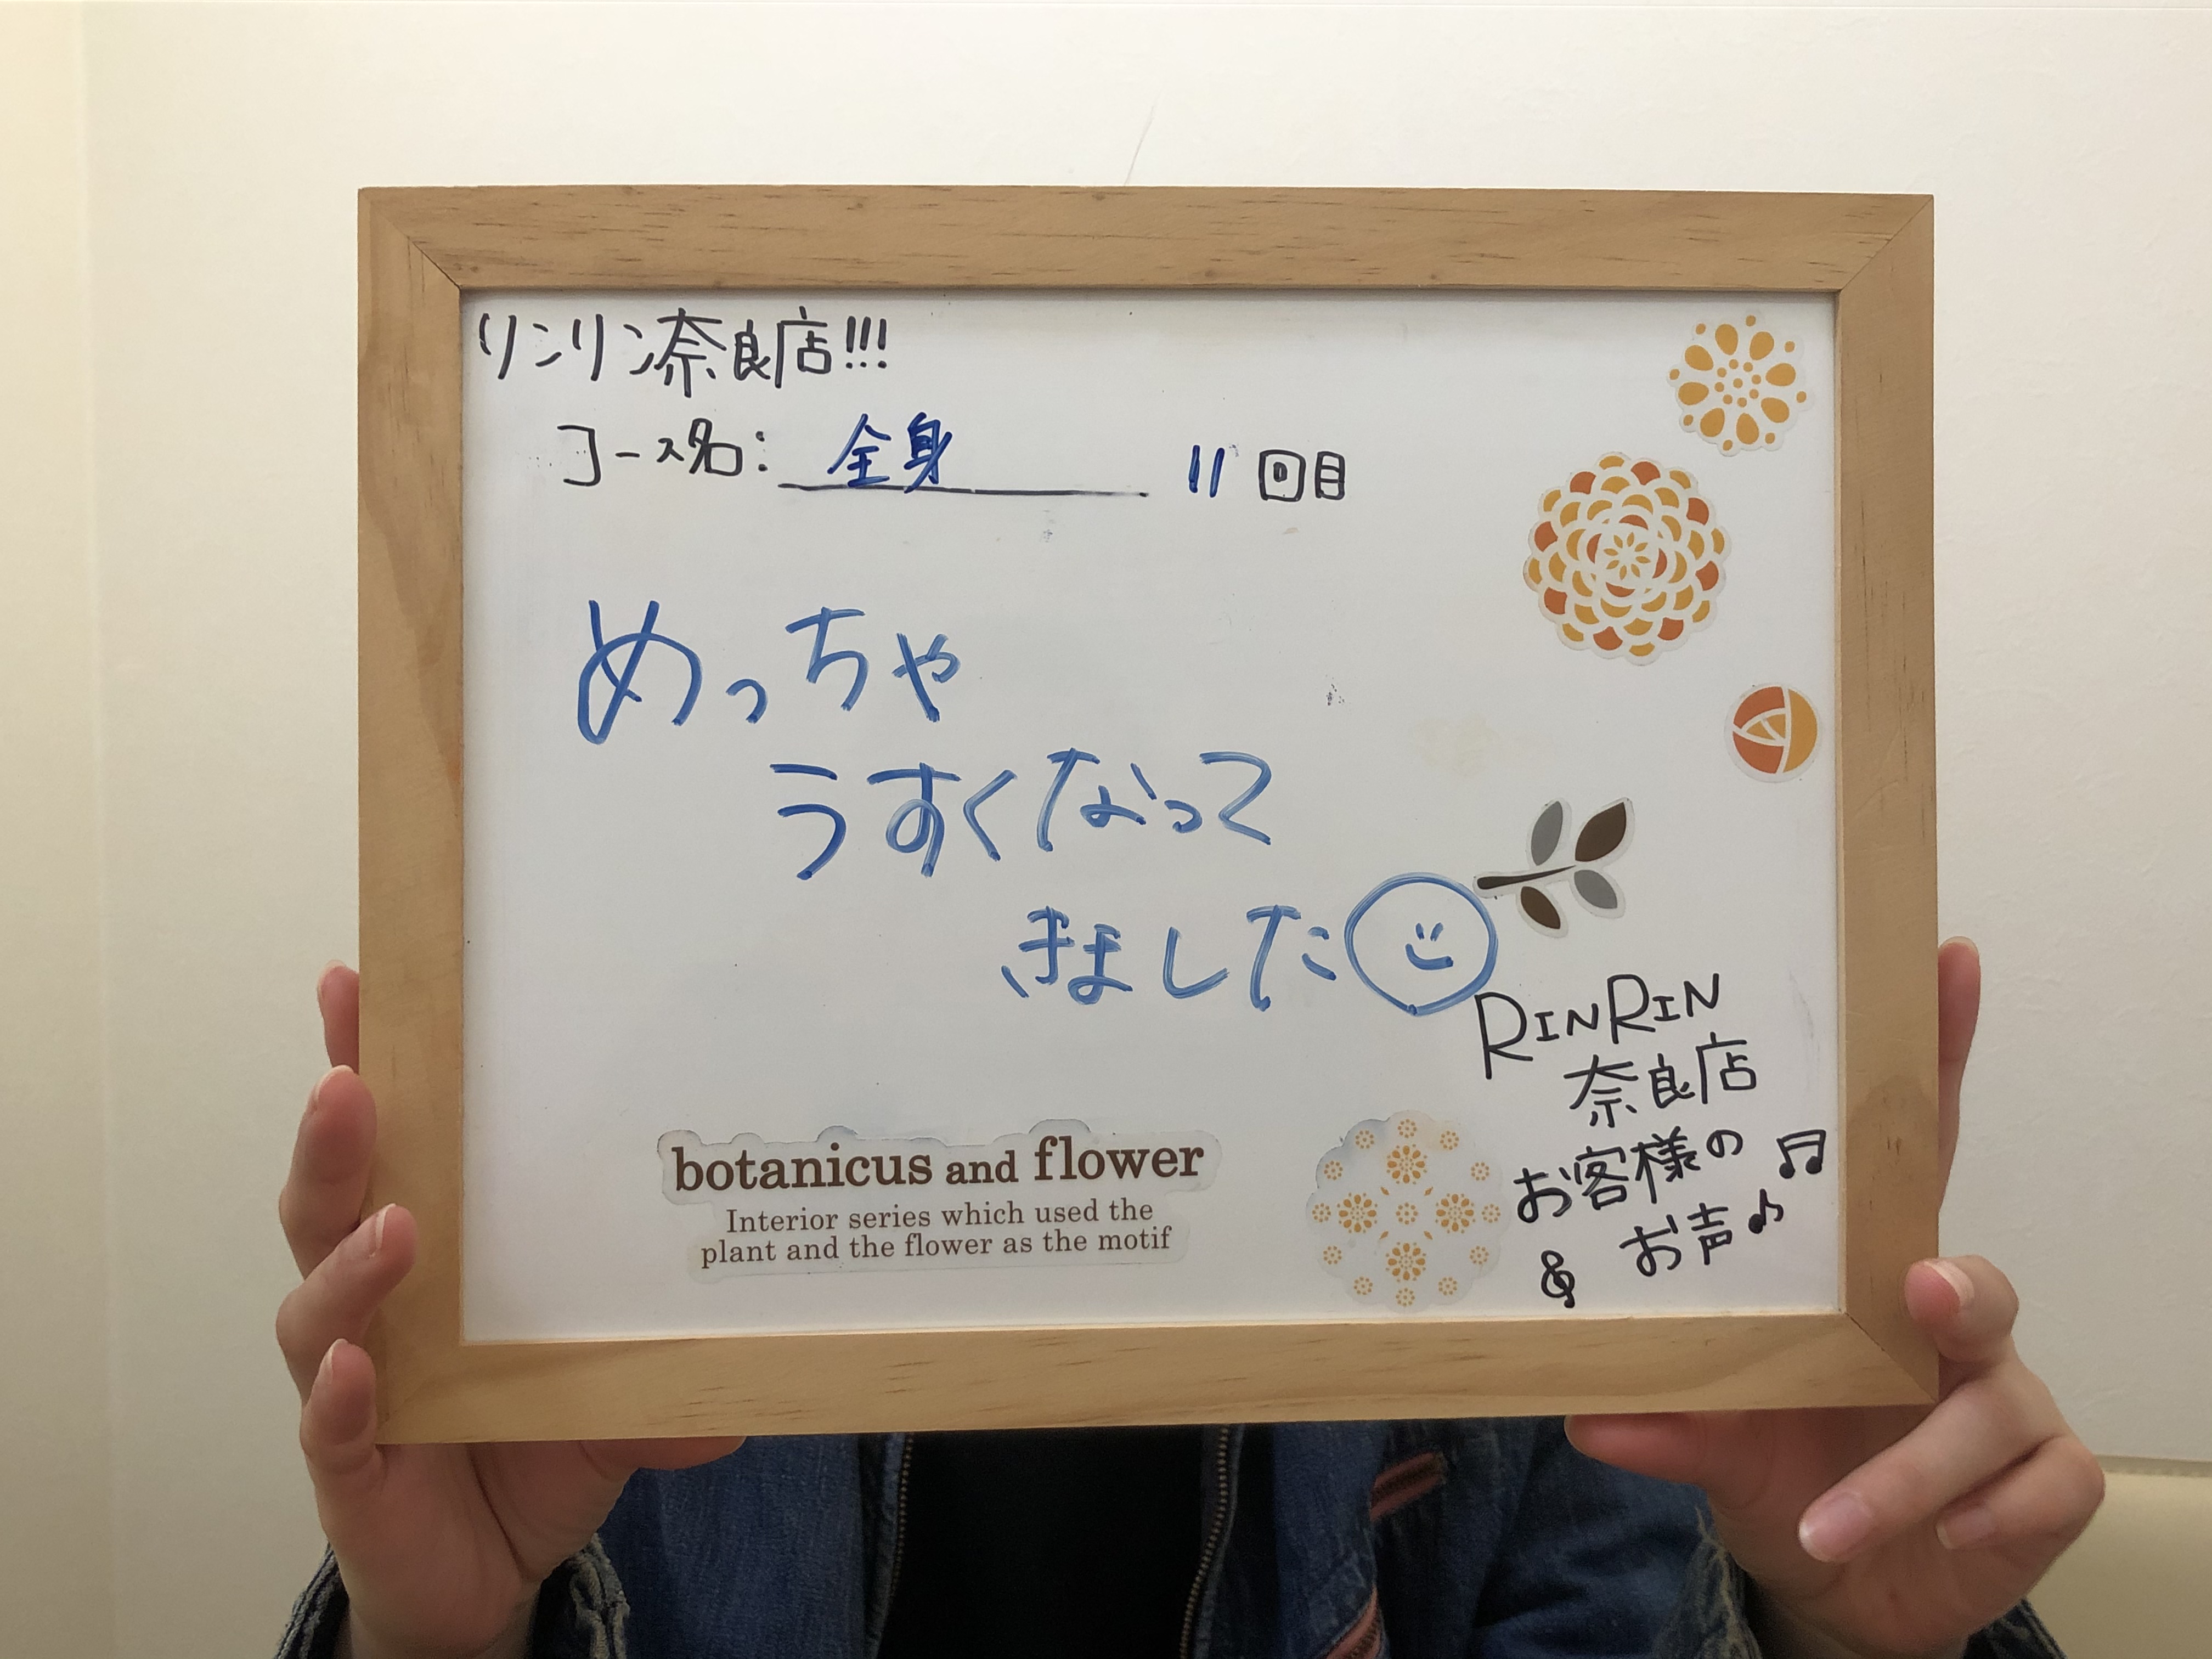 リンリン奈良店!!!
コース名: 全身 11回目
めっちゃ
うすくなって
きました
RINRIN
奈良店
お客様の
お声♪
botanicus and flower
Interior series which used the
plant and the flower as the motif